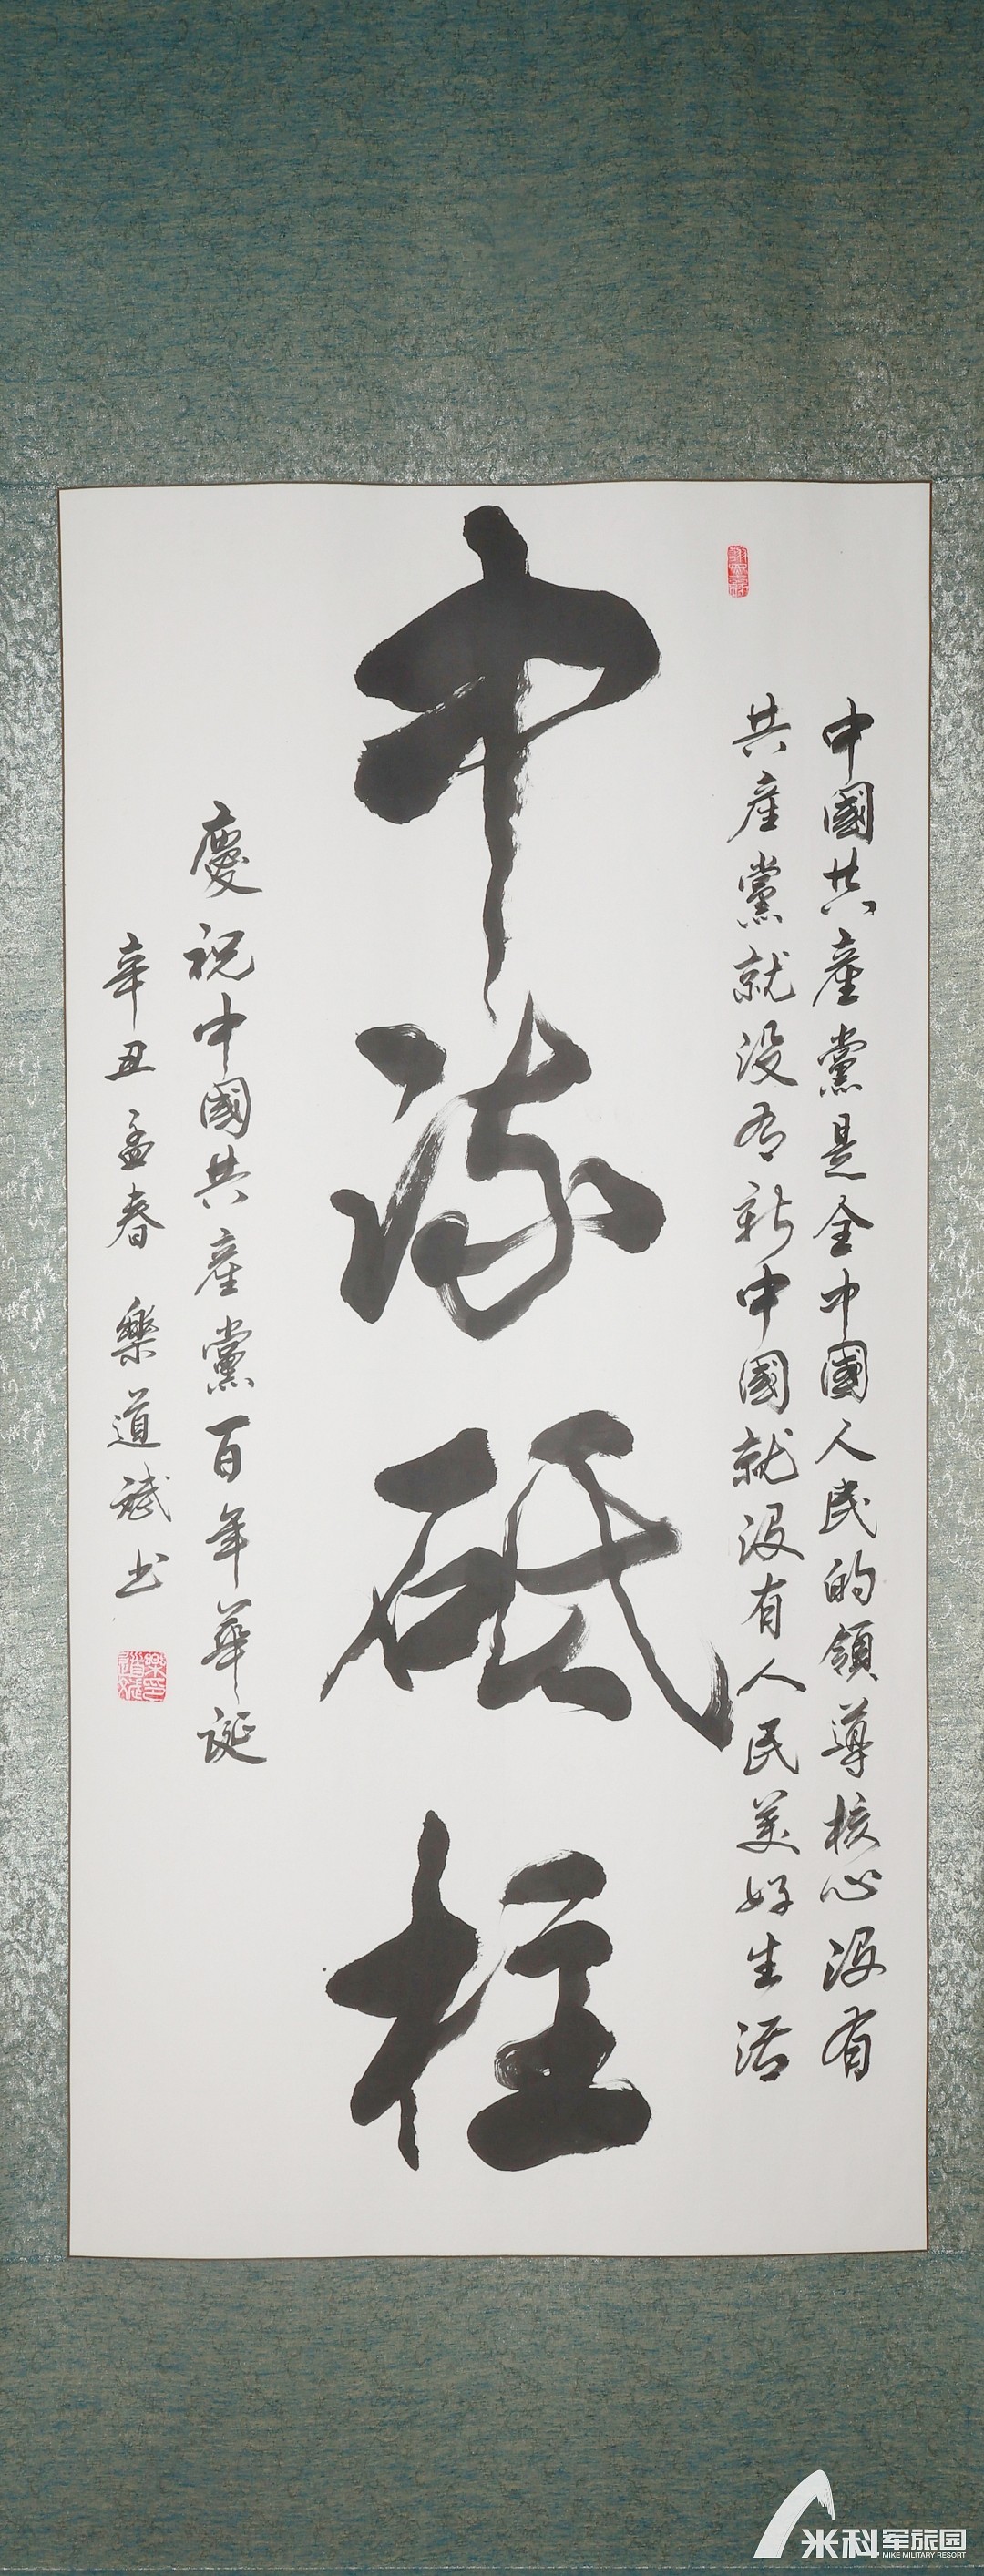 中國共產黨是全中國人民的領導核心没有
共產黨就没有新中國就没有人民美好生活
中流砥柱
慶祝中國共產黨百年華誕
辛丑孟春 樂道斌书
米科军旅园
MIKE MILITARY RESORT